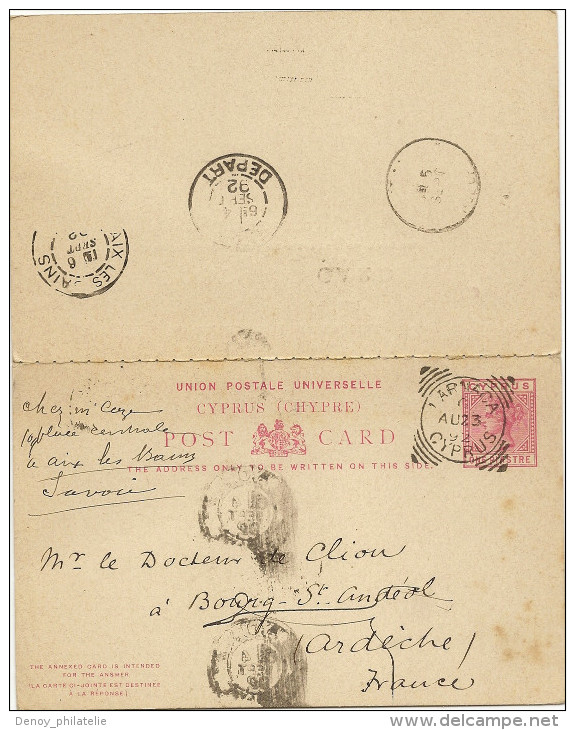 DEPART
SEPT
92
AIX LES BAINS
6
SEPT
92
5
SEPT
UNION POSTALE UNIVERSELLE
CYPRUS (CHYPRE)
POST CARD
THE ADDRESS ONLY TO BE WRITTEN ON THIS SIDE.
CYPRUS
ONE PIASTRE
LARNACA
AU 23
92
CYPRUS
chez Mr
place centrale
à aix les Bains
Savoie
Mr le Docteur de Clion
à Bourg-St. Andéol
(Ardèche)
France
THE ANNEXED CARD IS INTENDED
FOR THE ANSWER
(LA CARTE CI-JOINTE EST DESTINÉE
À LA RÉPONSE)
Denoy_philatelie
www.delcampe.net